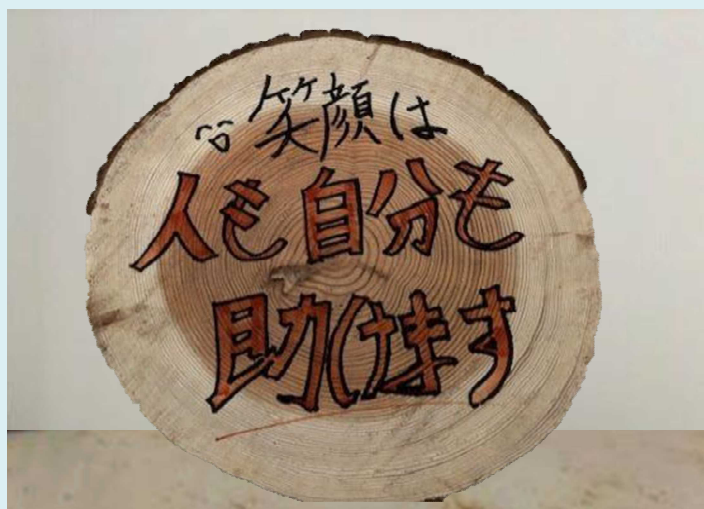 笑顔は
人も自分も
助けます